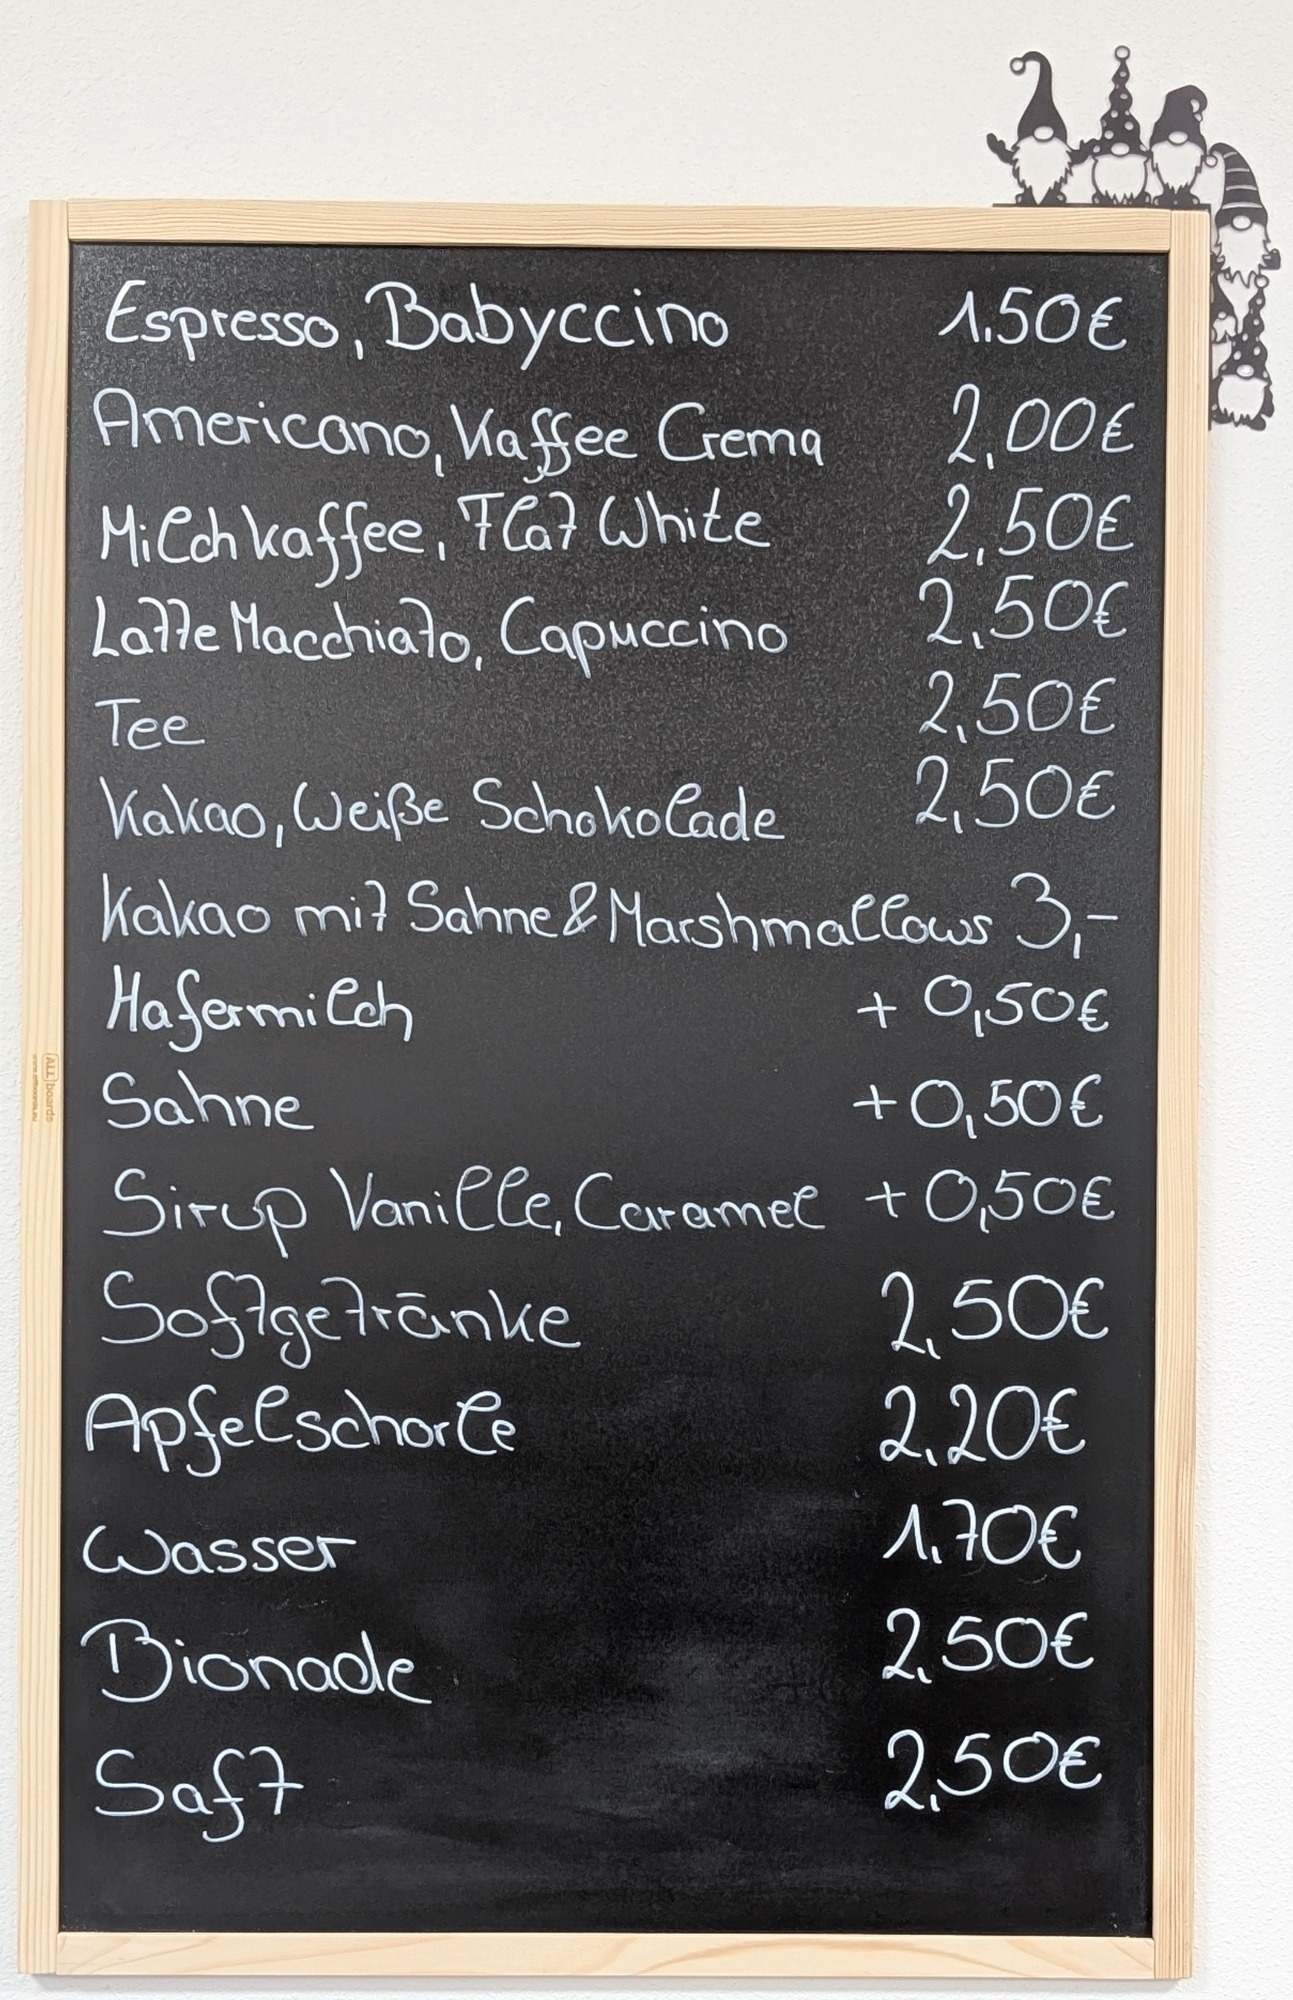 Espresso, Babyccino 1,50€
Americano, Kaffee Crema 2,00€
Milchkaffee, Flat White 2,50€
Latte Macchiato, Capuccino 2,50€
Tee 2,50€
Kakao, Weiße Schokolade 2,50€
Kakao mit Sahne & Marshmallows 3,-
Hafermilch + 0,50€
Sahne + 0,50€
Sirup Vanille, Caramel + 0,50€
Softgetränke 2,50€
Apfelschorle 2,20€
Wasser 1,70€
Bionade 2,50€
Saft 2,50€
ALLboards
www.allboards.eu